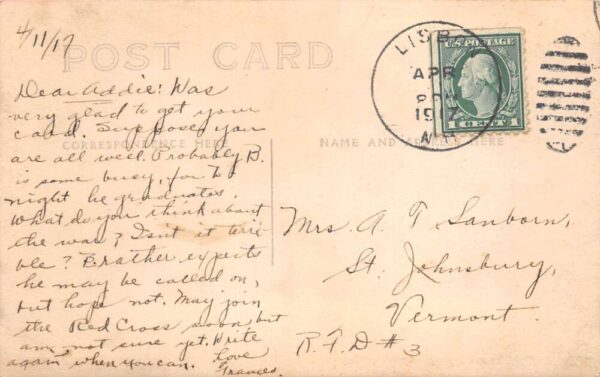 4/11/17
POST CARD
Dear Addie: Was
very glad to get your
card. Suppose you
are all well. Probably B.
is some busy, for to
night he graduates.
What do you think about
the war? Isn't it terri
ble? Brather expects
he may be called on,
but hope not. May join
the Red Cross soon but
am not sure yet. Write
again when you can. Love
Frances.
CORRESPONDENCE HERE
NAME AND ADDRESS HERE
LISBON
APR
1917
N.H.
U.S. POSTAGE
1 CENT 1
Mrs. A. T. Sanborn,
St. Johnsbury,
Vermont.
R.F.D #3